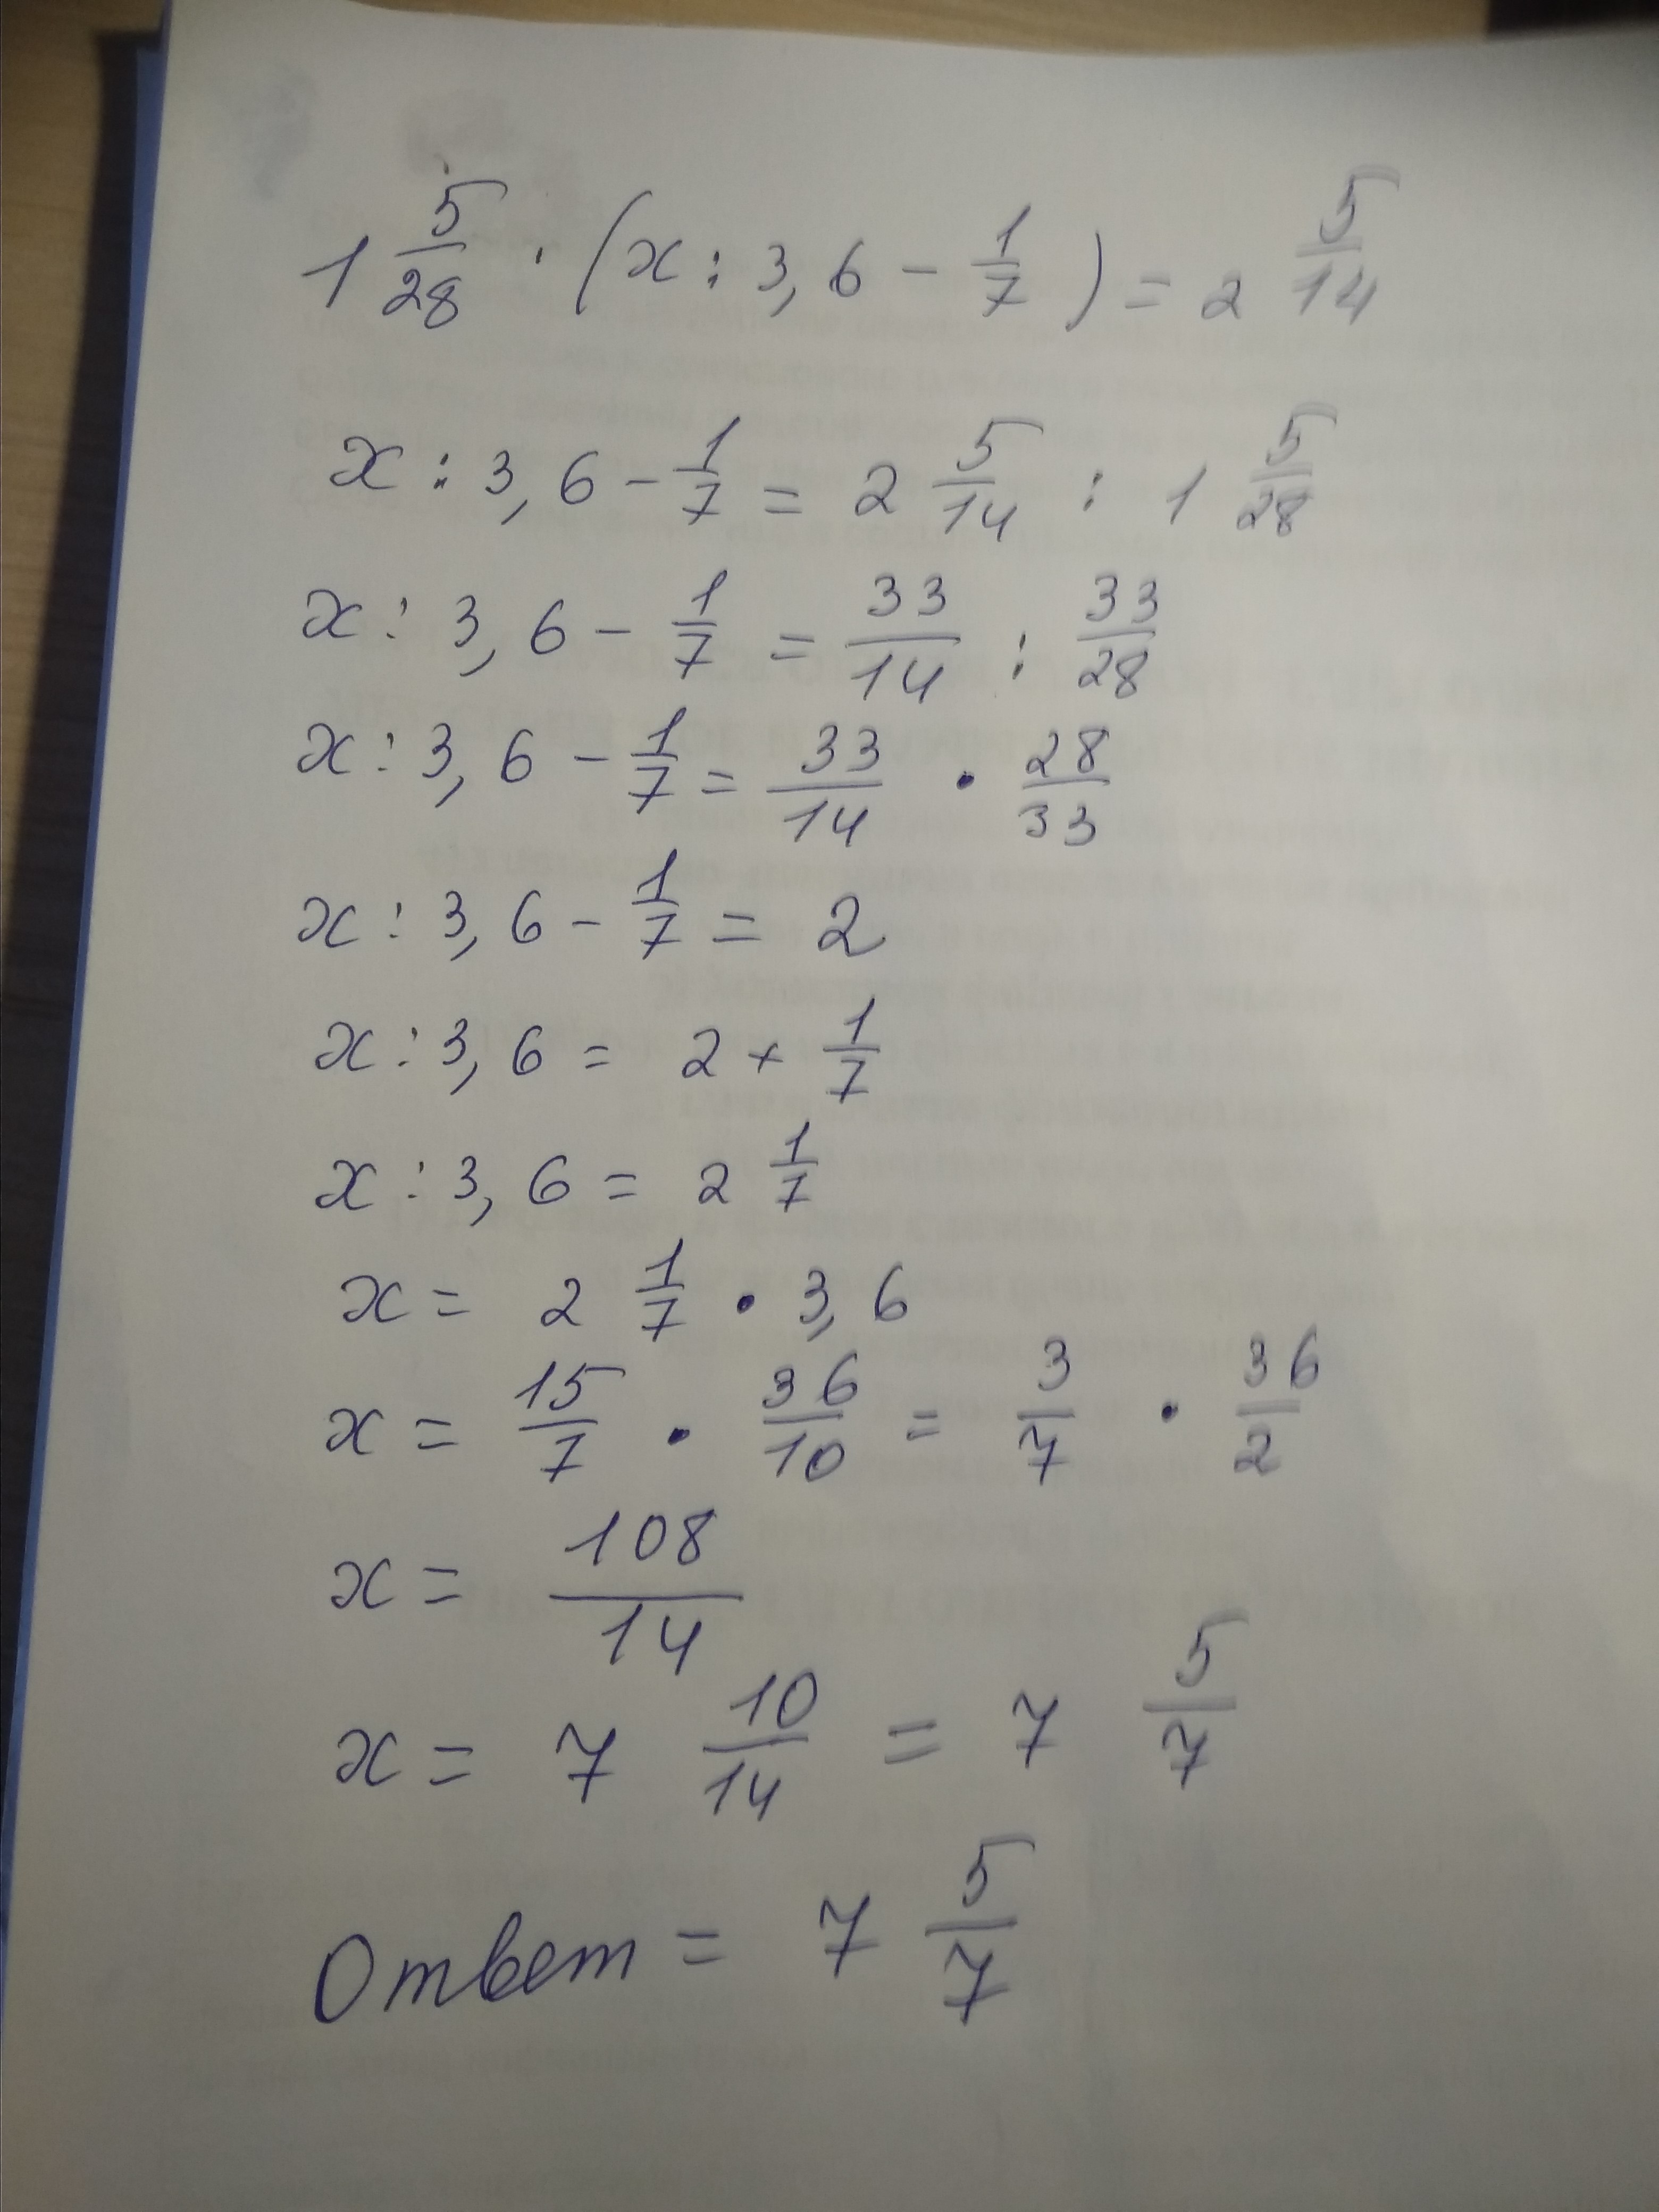 1 5/28 · (x : 3,6 - 1/7) = 2 5/14
x : 3,6 - 1/7 = 2 5/14 : 1 5/28
x : 3,6 - 1/7 = 33/14 : 33/28
x : 3,6 - 1/7 = 33/14 · 28/33
x : 3,6 - 1/7 = 2
x : 3,6 = 2 + 1/7
x : 3,6 = 2 1/7
x = 2 1/7 · 3,6
x = 15/7 · 36/10 = 3/7 · 36/2
x = 108/14
x = 7 10/14 = 7 5/7
Ответ = 7 5/7